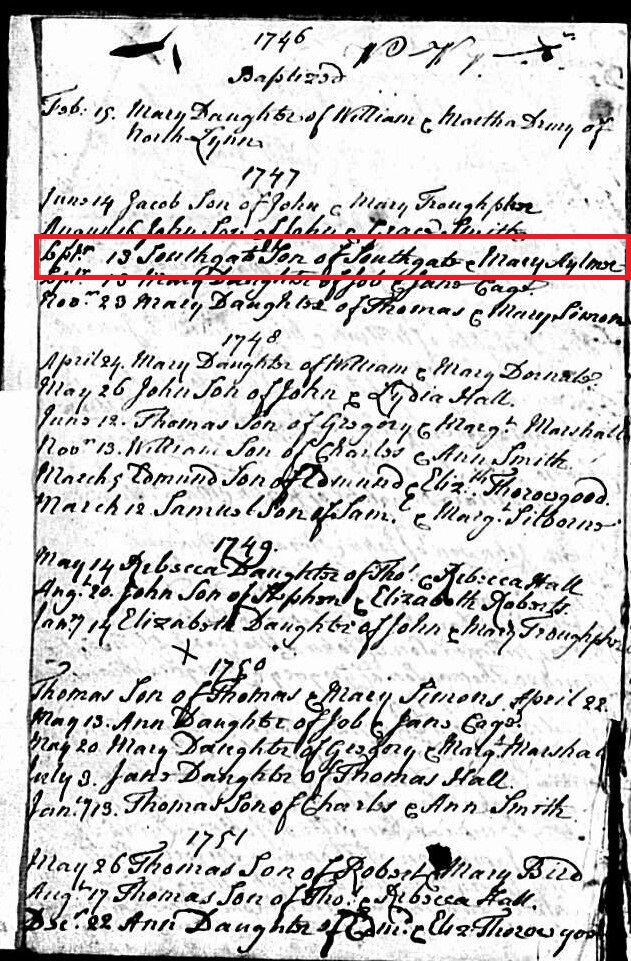 1746
Baptized
Feb: 15. Mary Daughter of William & Martha Drury of
North Lynn
1747
June 14 Jacob Son of John & Mary Troughpher
August 16 John Son of John & Grace Smith
Septr 13 Southgate Son of Southgate & Mary Aylmer
Septr 13 Mary Daughter of Job & Jane Cage.
Novr 23 Mary Daughter of Thomas & Mary Simons
1748
April 24. Mary Daughter of William & Mary
May 26 John Son of John & Lydia Hall.
June 12. Thomas Son of Gregory & Margt. Marshall
Novr 13. William Son of Charles & Ann Smith
March 5 Edmund Son of Edmund & Elizth Thorowgood.
March 12 Samuel Son of Sam. & Margt.
1749.
May 14 Rebecca Daughter of Tho: & Rebecca Hall
Augt 20. John Son of Stephen & Elizabeth Roberts.
Jany 14 Elizabeth Daughter of John & Mary Troughpher
X
1750
Thomas Son of Thomas & Mary Simons April 22.
May 13. Ann Daughter of Job & Jane Cage.
May 20 Mary Daughter of Gregory & Margt. Marshal
July 3. Jane Daughter of Thomas Hall
Jany 13. Thomas Son of Charles & Ann Smith
1751
May 26 Thomas Son of Robert & Mary Bird
Augt 17 Thomas Son of Tho: & Rebecca Hall.
Decr. 22 Ann Daughter of Edm: & Eliz: Thorowgood